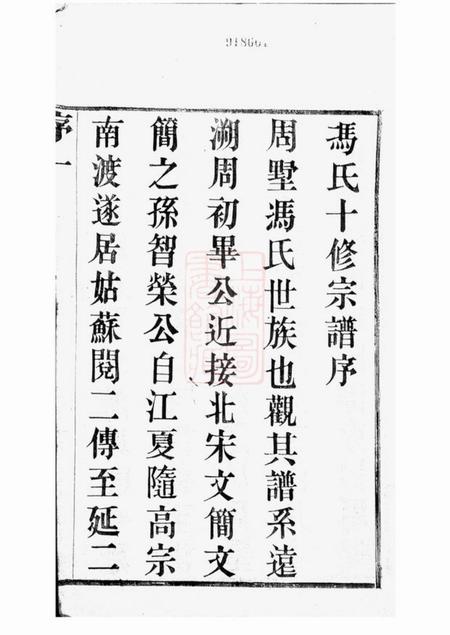 馮氏十修宗譜序
周墅馮氏世族也觀其譜系遠
溯周初畢公近接北宋文簡文
簡之孫智榮公自江夏隨高宗
南渡遂居姑蘇閱二傳至延二
序 一